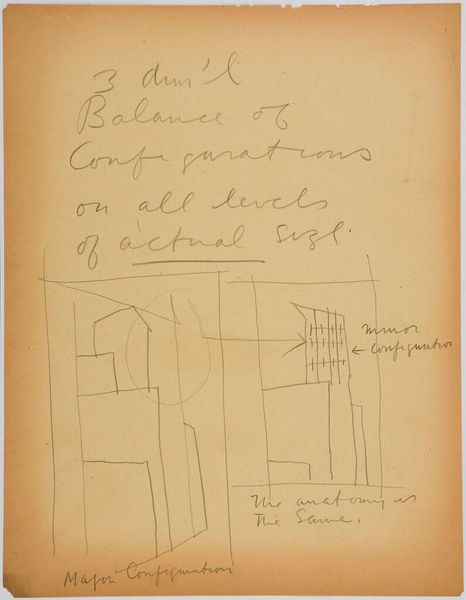 3 dim'l
Balance of
Configurations
on all levels
of actual size.
minor
← Configuration
The anatomy is
The Same.
Major Configuration